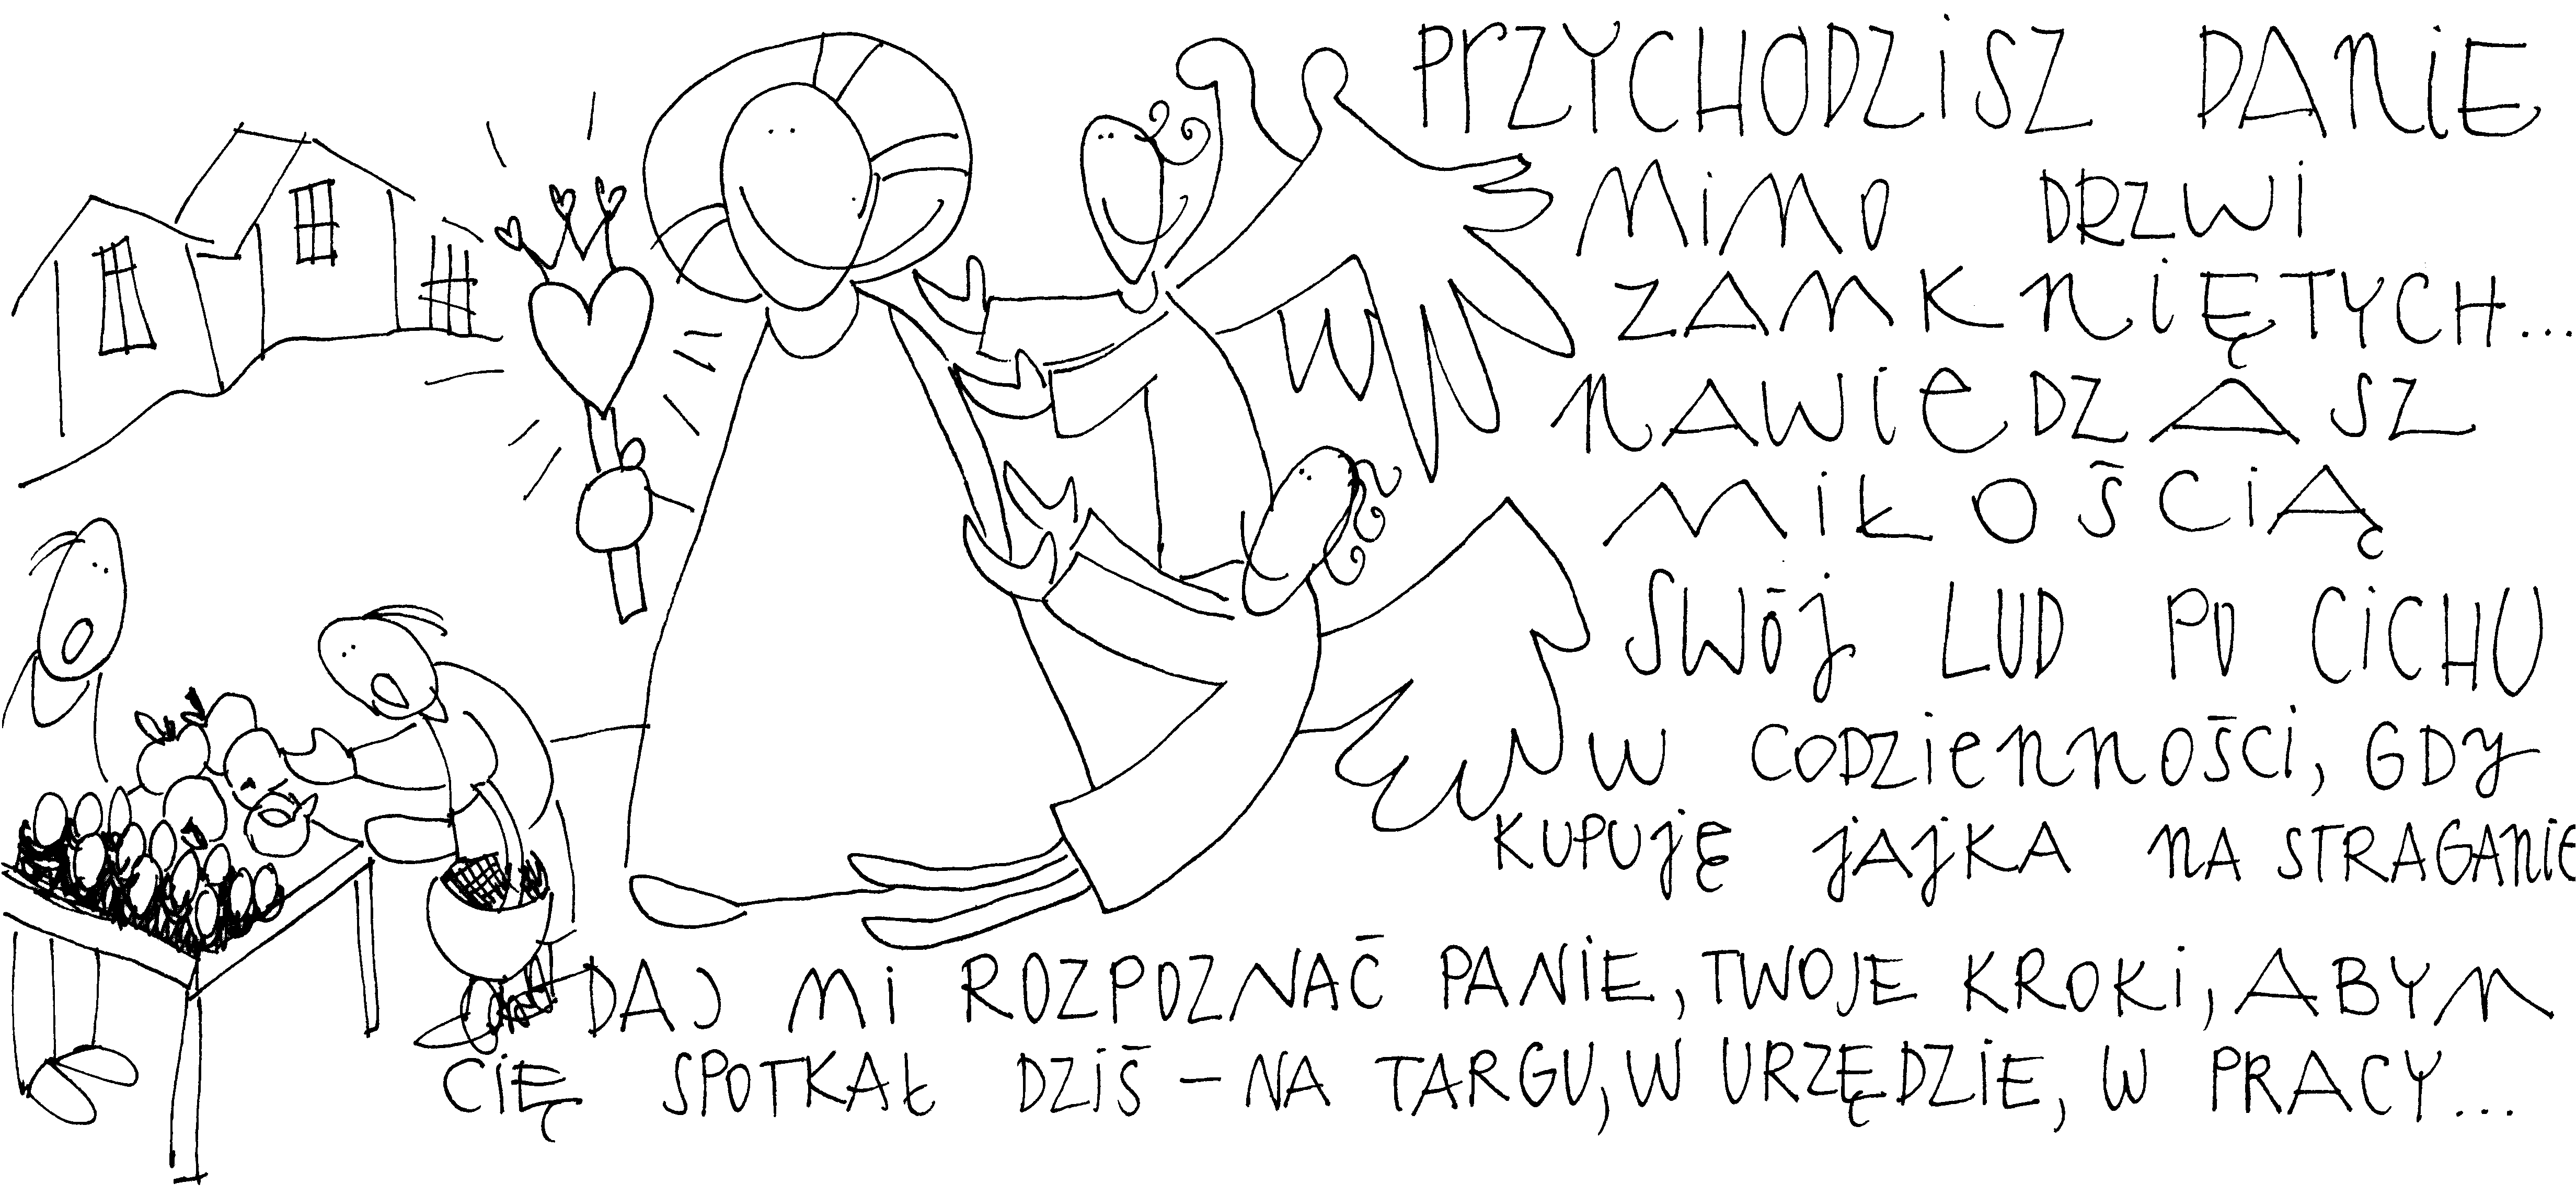 PRZYCHODZISZ PANIE
MIMO DRZWI
ZAMKNIĘTYCH...
NAWIEDZASZ
MIŁOŚCIĄ
SWÓJ LUD PO CICHU
W CODZIENNOŚCI, GDY
KUPUJĘ JAJKA NA STRAGANIE
DAJ MI ROZPOZNAĆ PANIE, TWOJE KROKI, ABYM
CIĘ SPOTKAŁ DZIŚ – NA TARGU, W URZĘDZIE, W PRACY...